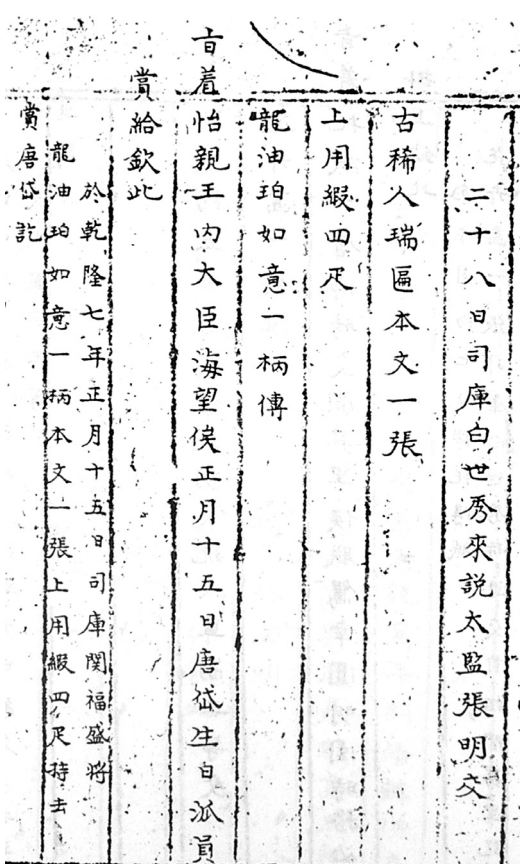 二十八日司庫白世秀來說太監張明交
古稀人瑞匾本文一張
上用緞四疋
龍油珀如意一柄傳
旨着怡親王內大臣海望俟正月十五日唐岱生日派員
賞給欽此
於乾隆七年正月十五日司庫関福盛將
龍油珀如意一柄本文一張上用緞四疋持去
賞唐岱訖